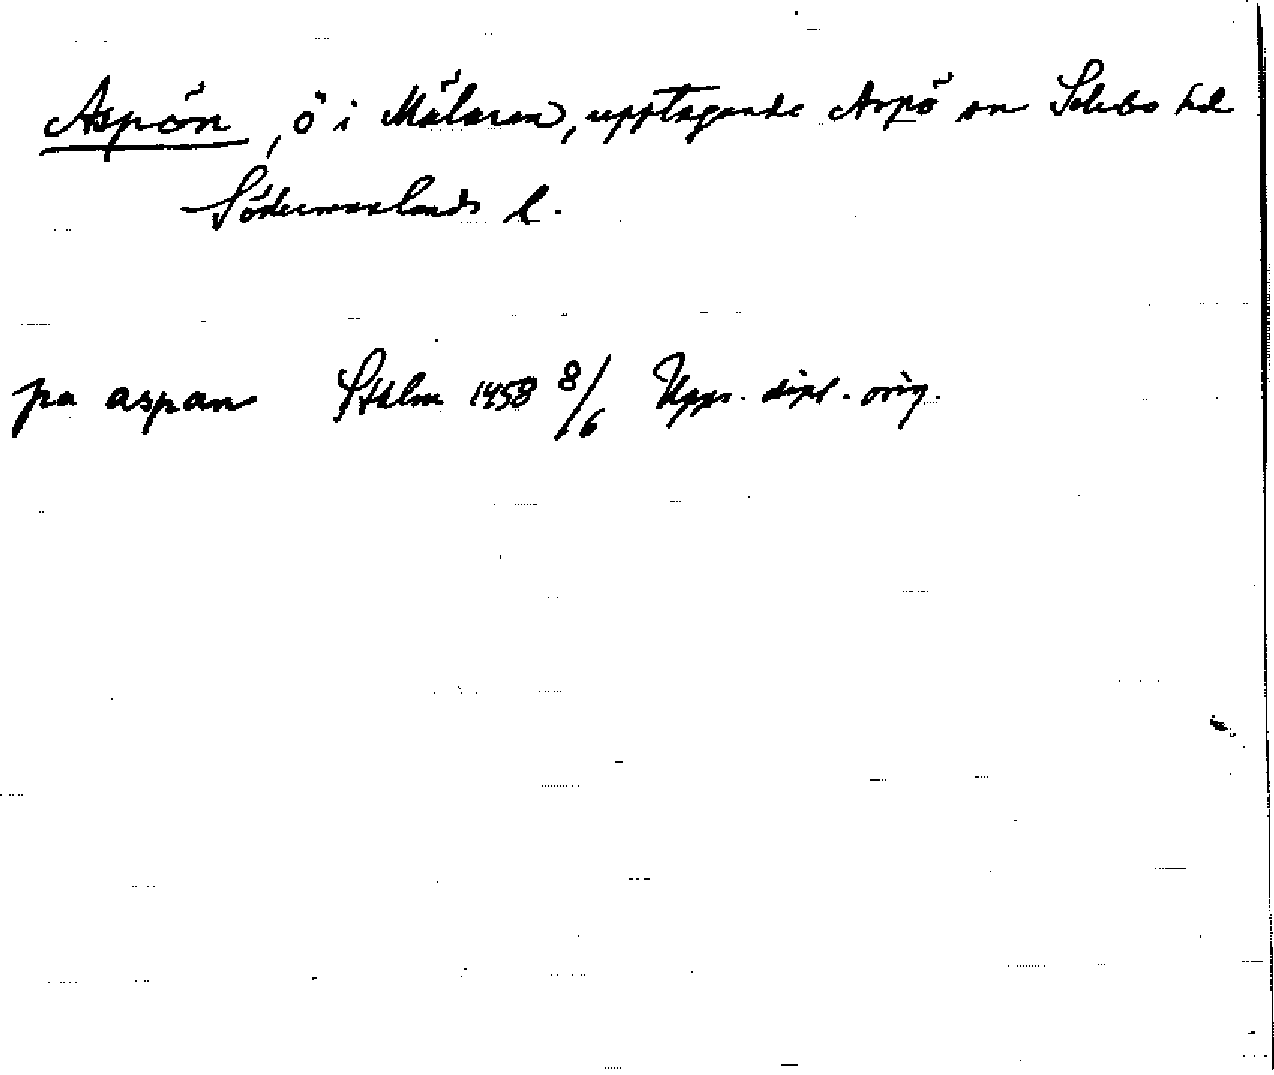 Aspön, ö i Mälaren, upptagande Aspö sn Selebo hd
Södermanlands l.
pa aspan Sthlm 1458 8/6 Upps. dipl. orig.